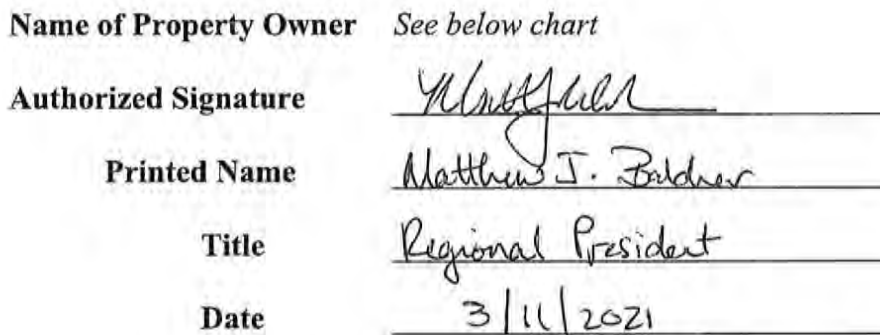 Name of Property Owner See below chart
Authorized Signature
Printed Name Matthew J. Baldner
Title Regional President
Date 3/11/2021